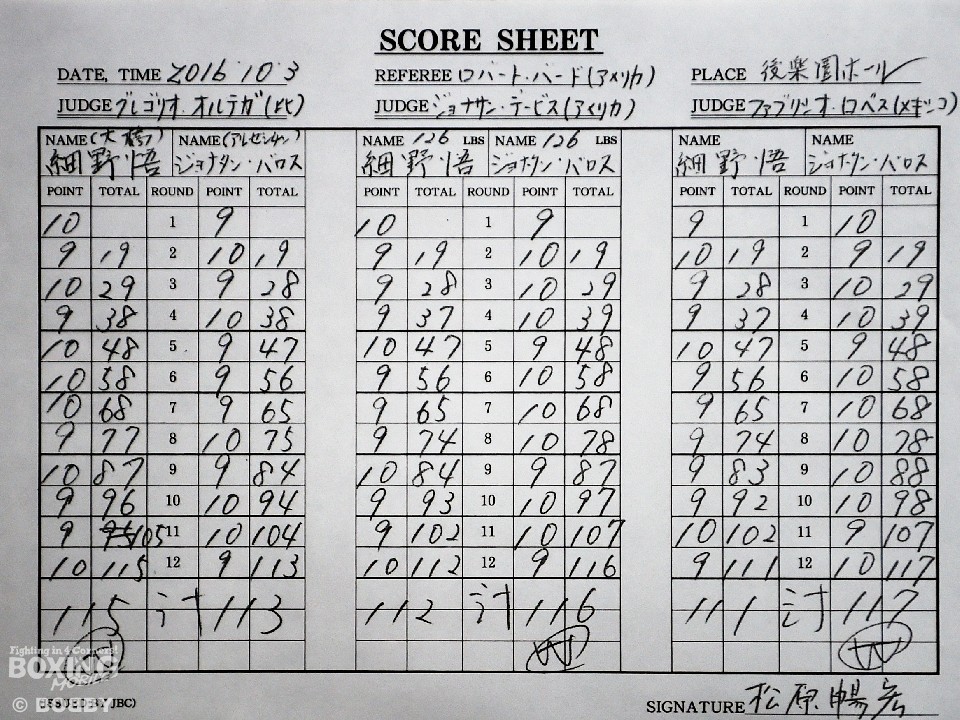 SCORE SHEET
DATE, TIME 2016.10.3 REFEREE ロバート・バード(アメリカ) PLACE 後楽園ホール
JUDGE グレゴリオ.オルテガ(比) JUDGE ジョナサン・デービス(アメリカ) JUDGE ファブリシオ・ロペス(メキシコ)
NAME (大橋) NAME (アルゼンチン) NAME 126 LBS NAME 126 LBS NAME NAME
細野悟 ジョナタン・バロス 細野悟 ジョナタン・バロス 細野悟 ジョナタン・バロス
POINT TOTAL ROUND POINT TOTAL POINT TOTAL ROUND POINT TOTAL POINT TOTAL ROUND POINT TOTAL
10 1 9 10 1 9 9 1 10
9 19 2 10 19 9 19 2 10 19 10 19 2 9 19
10 29 3 9 28 9 28 3 10 29 9 28 3 10 29
9 38 4 10 38 9 37 4 10 39 9 37 4 10 39
10 48 5 9 47 10 47 5 9 48 10 47 5 9 48
10 58 6 9 56 9 56 6 10 58 9 56 6 10 58
10 68 7 9 65 9 65 7 10 68 9 65 7 10 68
9 77 8 10 75 9 74 8 10 78 9 74 8 10 78
10 87 9 9 84 10 84 9 9 87 9 83 9 10 88
9 96 10 10 94 9 93 10 10 97 9 92 10 10 98
9 105 11 10 104 9 102 11 10 107 10 102 11 9 107
10 115 12 9 113 10 112 12 9 116 9 111 12 10 117
115 計 113 112 計 116 111 計 117
W W W
Fighting in 4 Corners!
BOXING
Mobile
© BOGBY
(ISSUED BY JBC)
SIGNATURE 松原暢宏